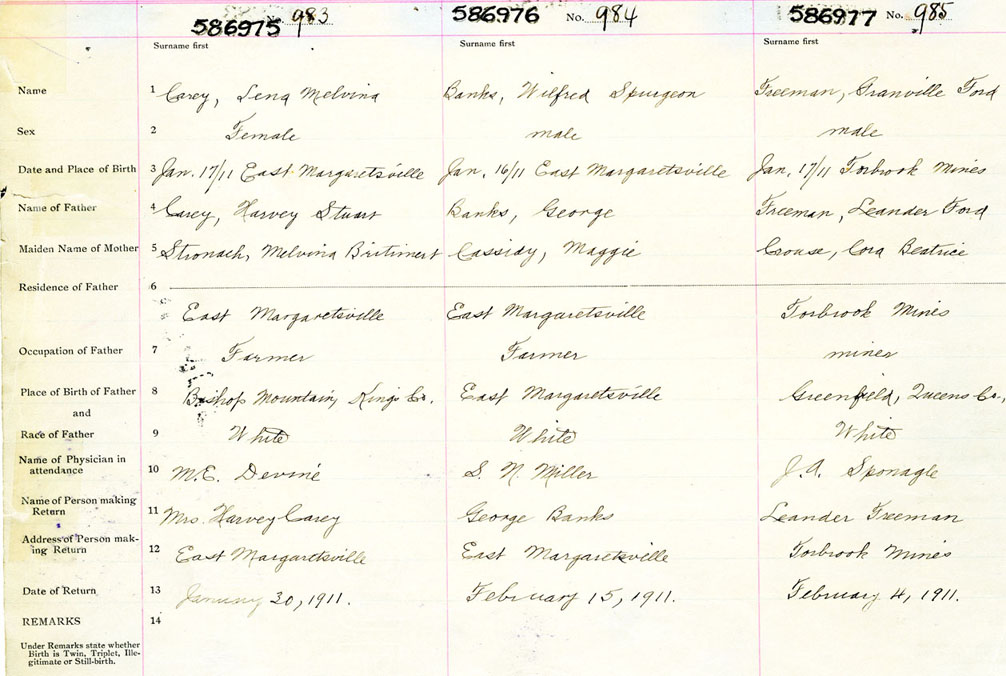 586975 983 586976 No. 984 586977 No. 985
Surname first Surname first Surname first
Name 1 Carey, Lena Melvina Banks, Wilfred Spurgeon Freeman, Granville Ford
Sex 2 Female male male
Date and Place of Birth 3 Jan. 17/11 East Margaretsville Jan. 16/11 East Margaretsville Jan. 17/11 Torbrook Mines
Name of Father 4 Carey, Harvey Stuart Banks, George Freeman, Leander Ford
Maiden Name of Mother 5 Stronach, Melvina Cassidy, Maggie Crouse, Cora Beatrice
Residence of Father 6
East Margaretsville East Margaretsville Torbrook Mines
Occupation of Father 7 Farmer Farmer miner
Place of Birth of Father 8 Bishop Mountain, Kings Co. East Margaretsville Greenfield, Queens Co.,
and
Race of Father 9 White White White
Name of Physician in
attendance 10 M.E. Devine S. N. Miller J.A. Sponagle
Name of Person making
Return 11 Mrs. Harvey Carey George Banks Leander Freeman
Address of Person mak-
ing Return 12 East Margaretsville East Margaretsville Torbrook Mines
Date of Return 13 January 30, 1911. February 15, 1911. February 4, 1911.
REMARKS 14
Under Remarks state whether
Birth is Twin, Triplet, Ille-
gitimate or Still-birth.